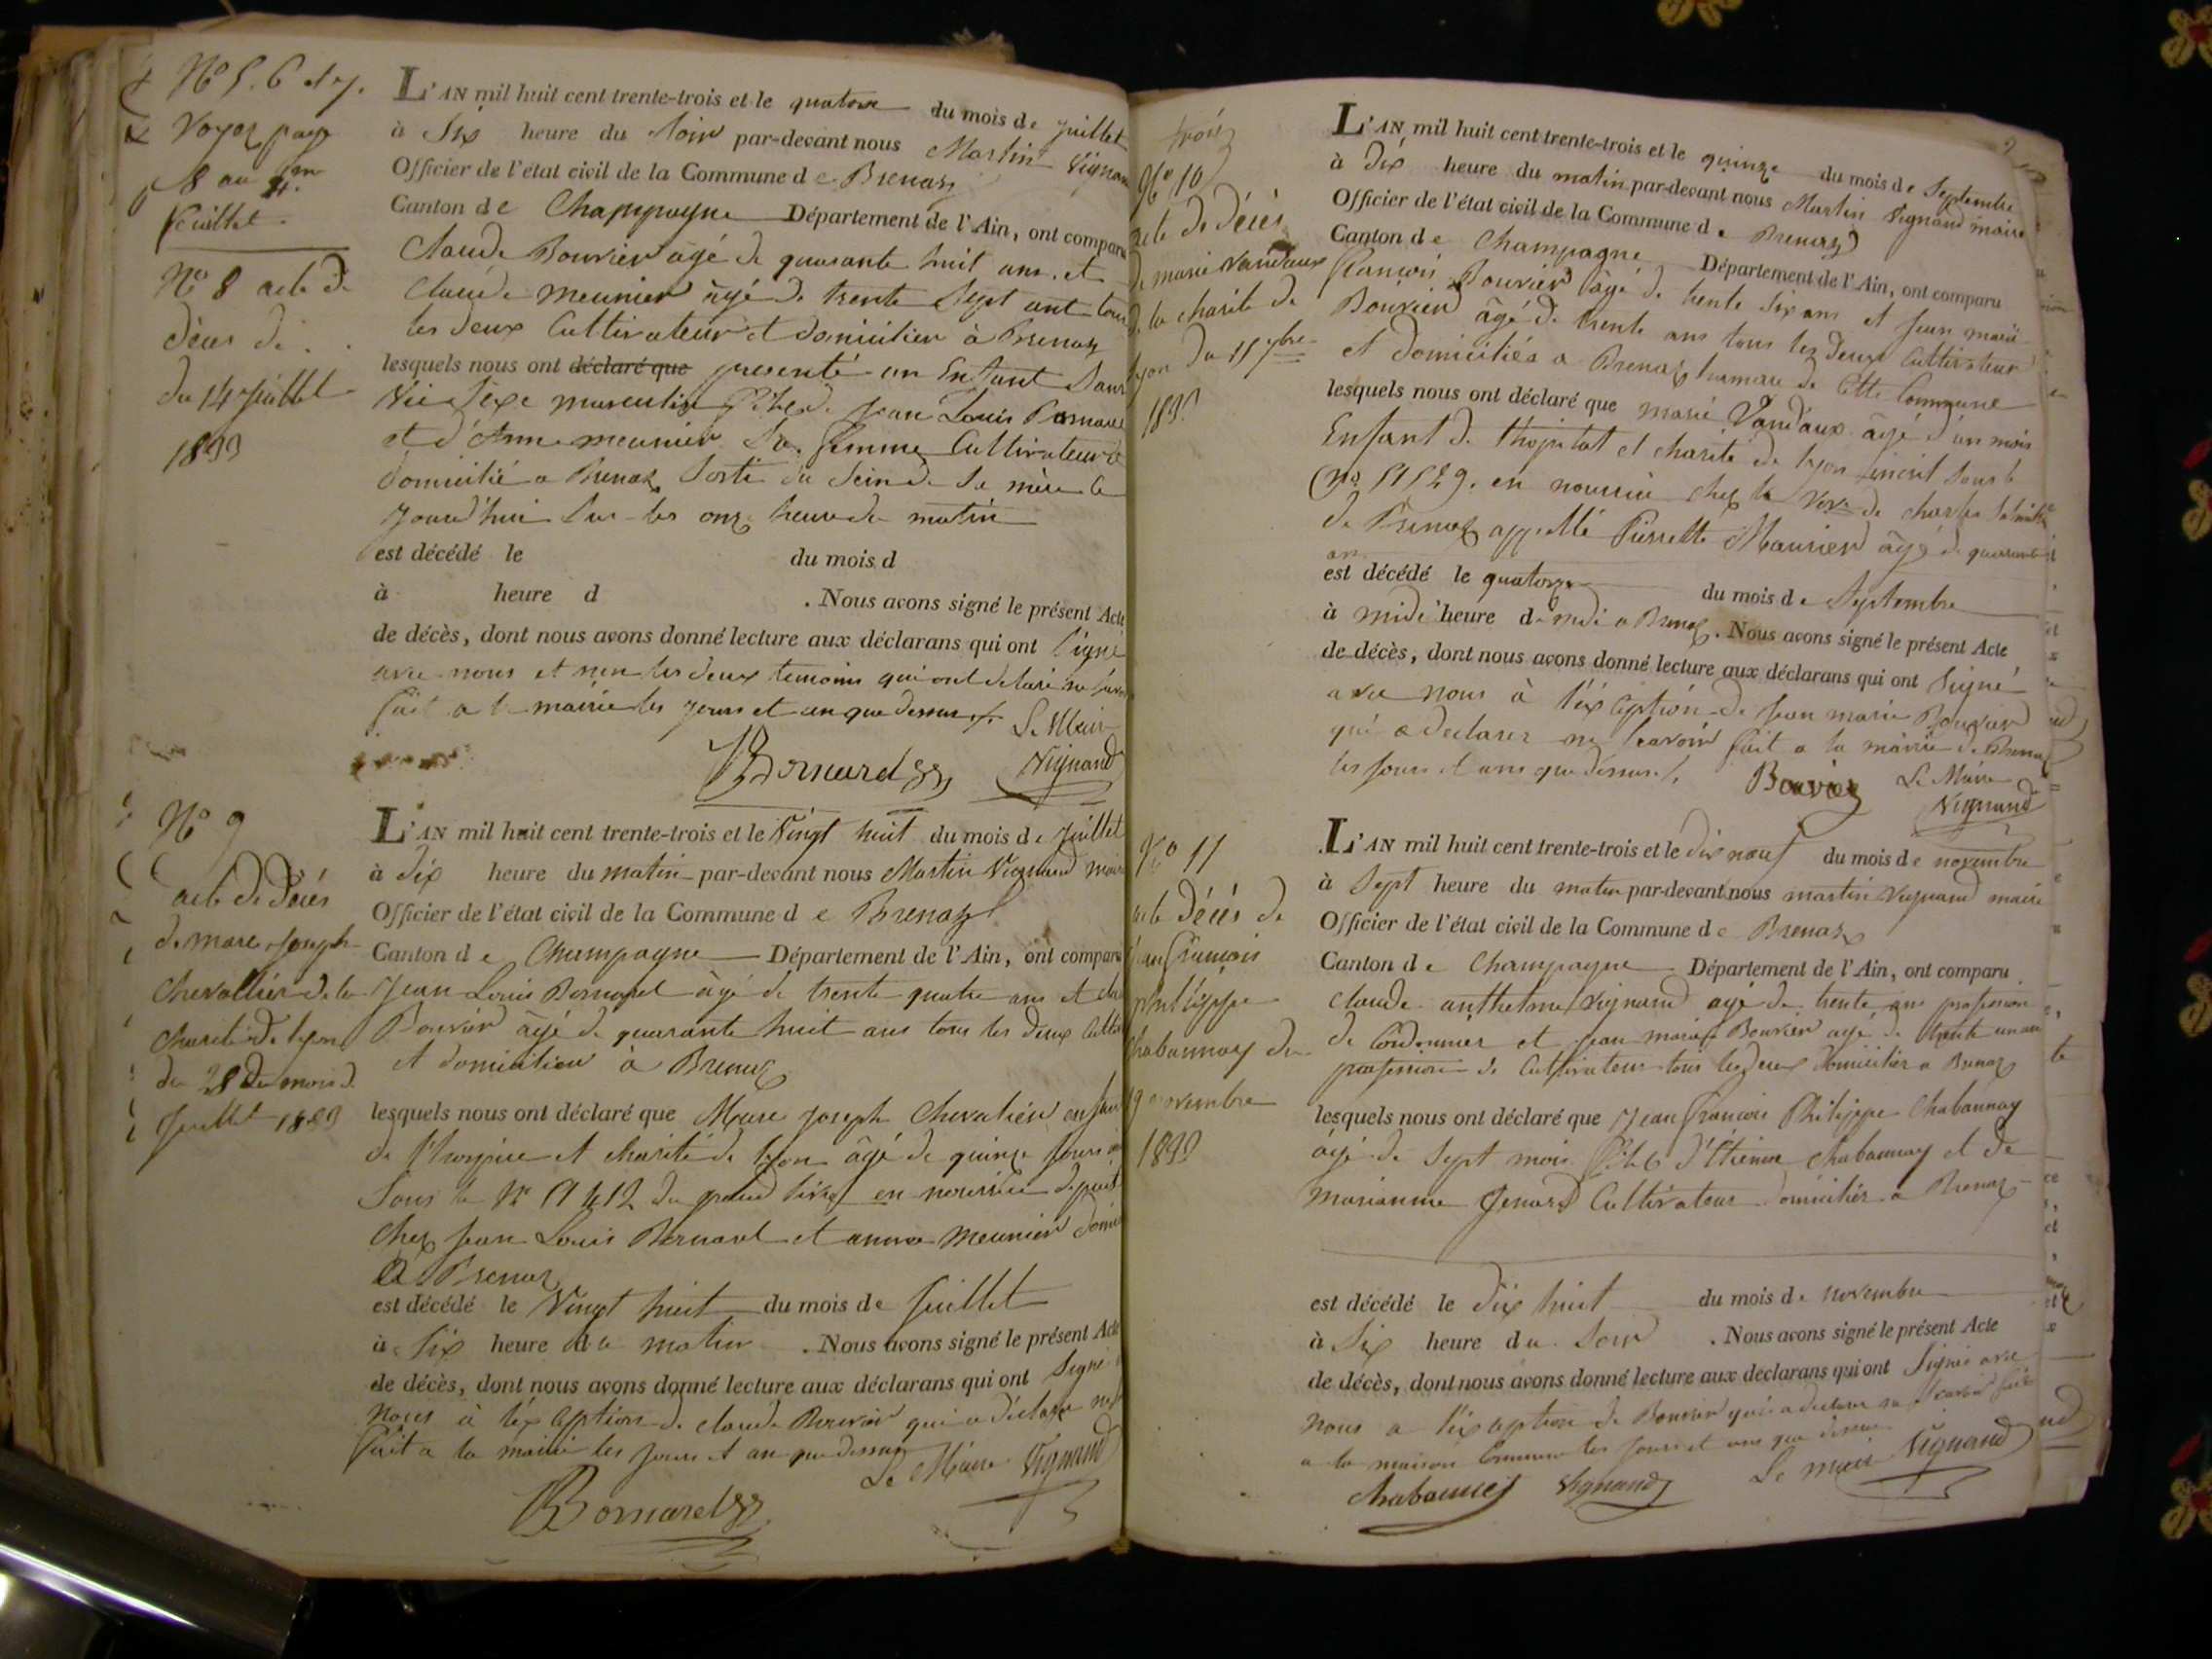 Nº 5. 6 et 7.
Voyez page
8 au
feuillet.
Nº 8 acte de
décès de
du 14 Juillet
1833
L'AN mil huit cent trente-trois et le quatorze du mois de juillet
à Six heure du soir par-devant nous Martin Vignand
Officier de l'état civil de la Commune de Brenaz
Canton de Champagne Département de l'Ain, ont comparu
Claude Bouvier âgé de quarante huit ans et
Claude meunier âgé de trente sept ant tous
les deux Cultivateur et domicilier à Brenaz
lesquels nous ont déclaré que presenté un Enfant Sans
Vie Sexe masculin fils de Jean Louis Bornard
et d'Anne meunier Sa femme Cultivateur
domicilié a Brenaz Sorti du Sein de Sa mère le
jourd'hui Sur les onze heure du matin
est décédé le du mois d
à heure d . Nous avons signé le présent Acte
de décès, dont nous avons donné lecture aux déclarans qui ont signé
avec nous et non les deux temoins qui ont declaré ne savoir
fait a la mairie les jours et an que dessus Le Maire
Bornard Vignand
Nº 9
acte de Décès
de marc Joseph
Chevallier de la
Charité de lyon
du 28 du mois de
Juillet 1833
L'AN mil huit cent trente-trois et le Vingt huit du mois de Juillet
à dix heure du matin par-devant nous Martin Vignand maire
Officier de l'état civil de la Commune de Brenaz
Canton de Champagne Département de l'Ain, ont comparu
Jean Louis Bornard âgé de trente quatre ans et
Bouvier âgé de quarante huit ans tous les deux
et domicilier à Brenaz
lesquels nous ont déclaré que Marc Joseph Chevalier enfant
de l'hospice et charité de lyon âgé de quinze jours
Sous le Nº du grand livre en nourrice depuis
Chez Jean Louis Bornard et anne meunier
a Brenaz
est décédé le Vingt huit du mois de Juillet
à Six heure du matin . Nous avons signé le présent Acte
de décès, dont nous avons donné lecture aux déclarans qui ont Signé
nous à l'exception de claude Bouvier qui a déclaré
fait a la mairie les jours et an que dessus
Le Maire Vignand
Bornard
trois
Nº 10
acte de décès
de marie Vandaux
de la charité de
lyon du 15 7bre
1833
L'AN mil huit cent trente-trois et le quinze du mois de Septembre
à dix heure du matin par-devant nous Martin Vignand maire
Officier de l'état civil de la Commune de Brenaz
Canton de Champagne Département de l'Ain, ont comparu
François Bouvier âgé de trente six ans et Jean marie
Bouvier âgé de trente ans tous les deux Cultivateur
et domiciliés a Brenaz hamau de Cette Commune
lesquels nous ont déclaré que marie Vandaux âgé d'un mois
Enfant de l'hopital et charité de lyon inscrit Sous le
nº 51529. en nourrice chez la veve de charles
de Brenaz appellé Pierrette Maurier âgé de quarante
an
est décédé le quatorze du mois de Septembre
à midi heure de midi a Brenaz. Nous avons signé le présent Acte
de décès, dont nous avons donné lecture aux déclarans qui ont Signé
avec nous à l'éxception de Jean marie Bouvier
qui a declarer ne Savoir fait a la mairie de Brenaz
les jours et ans que dessus
Bouvier Le Maire
Vignand
Nº 11
acte Décès de
Jean François
philippe
Chabannay du
19 novembre
1833
L'AN mil huit cent trente-trois et le dix neuf du mois de novembre
à Sept heure du matin par-devant nous martin Vignand maire
Officier de l'état civil de la Commune de Brenaz
Canton de Champagne Département de l'Ain, ont comparu
claude anthelme Vignand agé de trente ans profession
de Cordonnier et Jean marie Bouvier agé de trente un an
profession de Cultivateur tous les deux domicilier a Brenaz
lesquels nous ont déclaré que Jean François Philippe Chabannay
âgé de Sept mois fils d'Etienne Chabannay et de
marianne Genard Cultivateur domicilier a Brenaz
est décédé le dix huit du mois de novembre
à Six heure du Soir . Nous avons signé le présent Acte
de décès, dont nous avons donné lecture aux déclarans qui ont Signé avec
nous a l'exception de Bouvier qui a declarer ne Scavoir fait
a la maison Commune les jours et ans que dessus
Chabannes Vignand Le maire Vignand